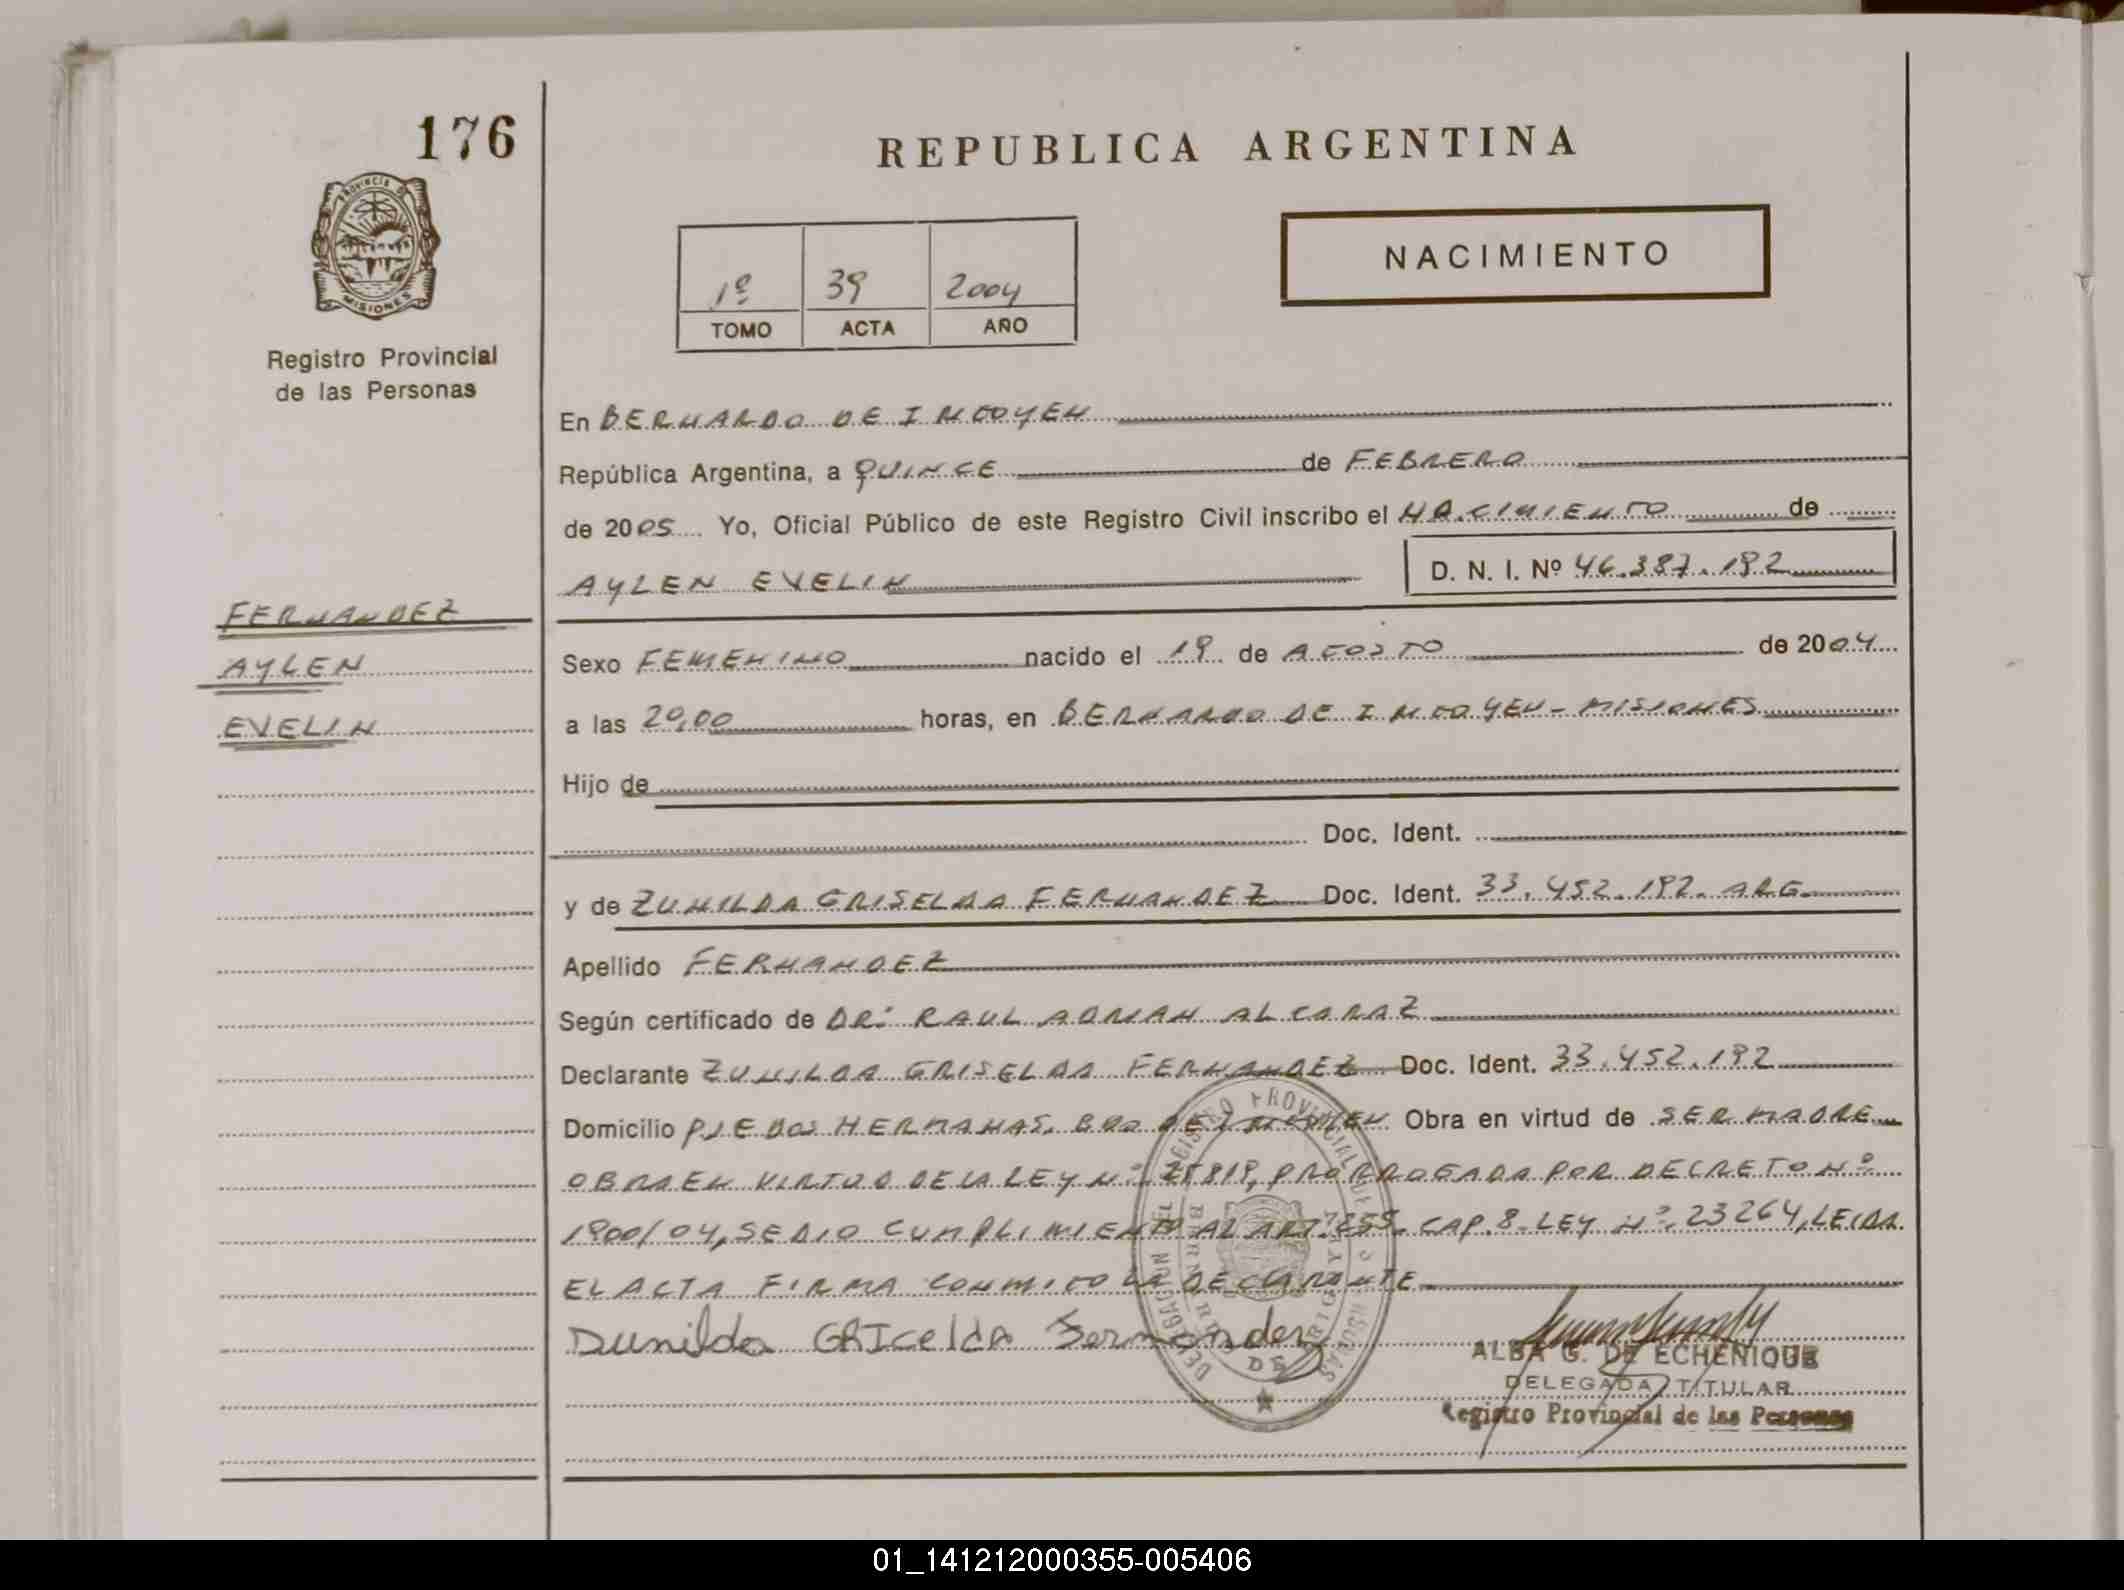 176
REPUBLICA ARGENTINA
PROVINCIA DE
MISIONES
NACIMIENTO
1º 39 2004
TOMO ACTA AÑO
Registro Provincial
de las Personas
En BERNARDO DE IRIGOYEN
República Argentina, a QUINCE de FEBRERO
de 2005 Yo, Oficial Público de este Registro Civil inscribo el NACIMIENTO de
AYLEN EVELIN D. N. I. Nº 46.387.192
FERNANDEZ
AYLEN
EVELIN
Sexo FEMENINO nacido el 19 de AGOSTO de 2004
a las 20,00 horas, en BERNARDO DE IRIGOYEN - MISIONES
Hijo de
Doc. Ident.
y de ZUNILDA GRISELDA FERNANDEZ Doc. Ident. 33.452.192. ARG.
Apellido FERNANDEZ
Según certificado de DR: RAUL ADRIAN ALCARAZ
Declarante ZUNILDA GRISELDA FERNANDEZ Doc. Ident. 33.452.192
Domicilio PJE DOS HERMANAS. BDO DE IRIGOYEN Obra en virtud de SER MADRE
OBRA EN VIRTUD DE LA LEY Nº 25819, PRORROGADA POR DECRETO Nº
1900/04, SE DIO CUMPLIMIENTO AL ART. 255. CAP. 8. LEY Nº 23264, LEIDA
EL ACTA FIRMA CONMIGO LA DECLARANTE
Dunilda GRIcelda Fernandez
ALBA G. DE ECHENIQUE
DELEGADA TITULAR
Registro Provincial de las Personas
01_141212000355-005406